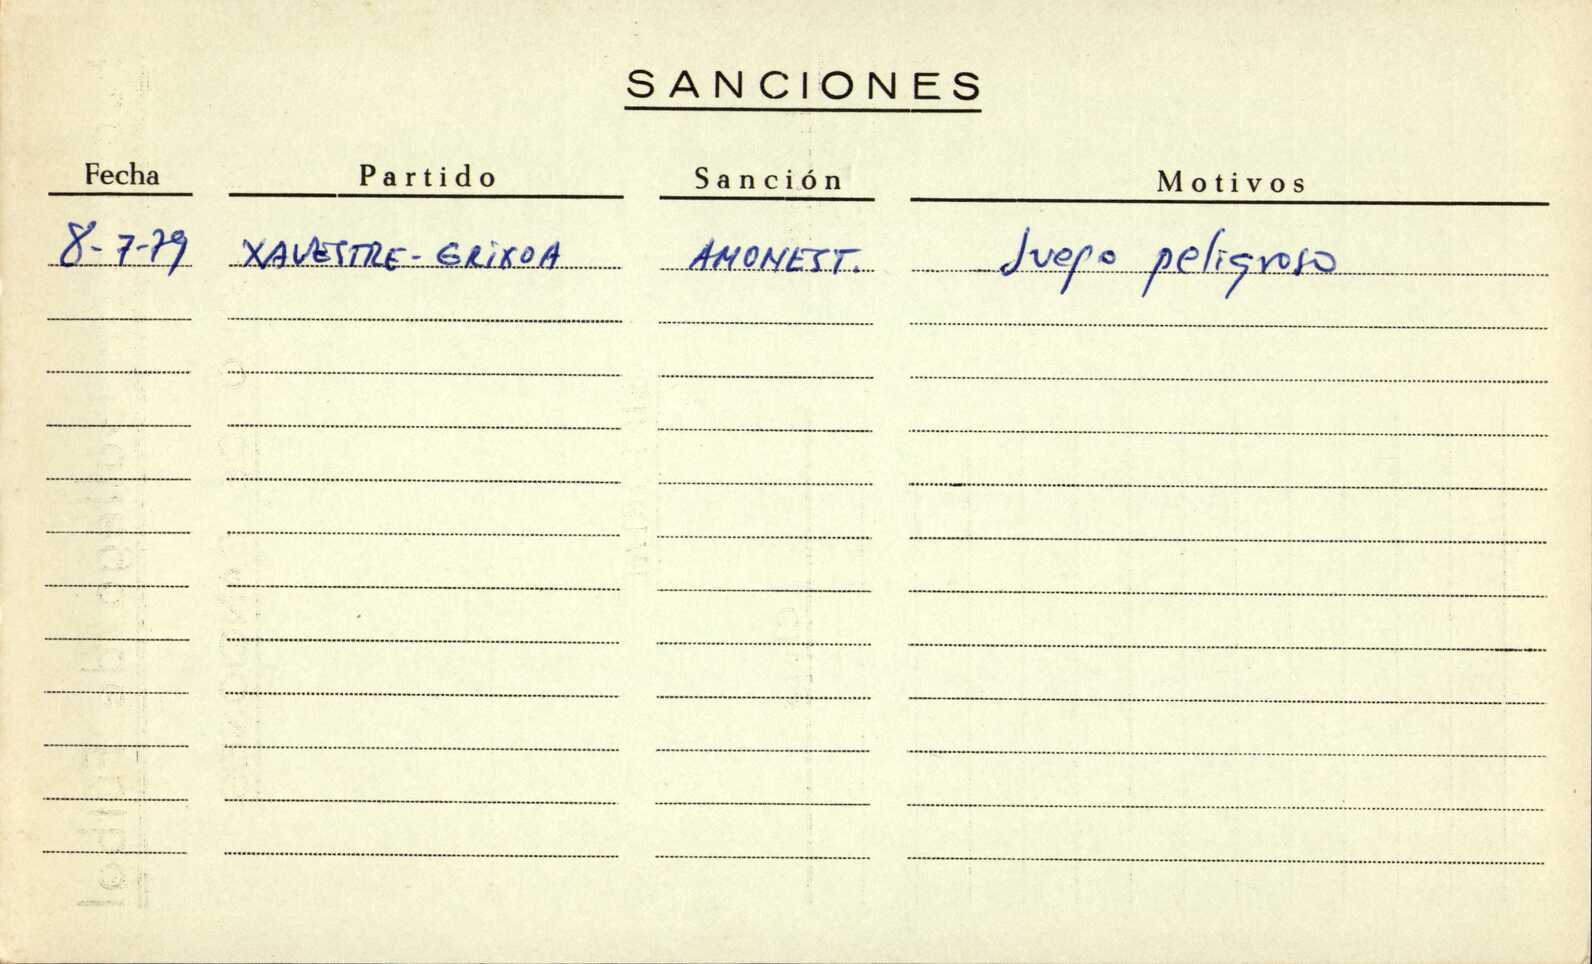 SANCIONES
Fecha Partido Sanción Motivos
8-7-79 XAVESTRE-GRIXOA AMONEST. Juego peligroso